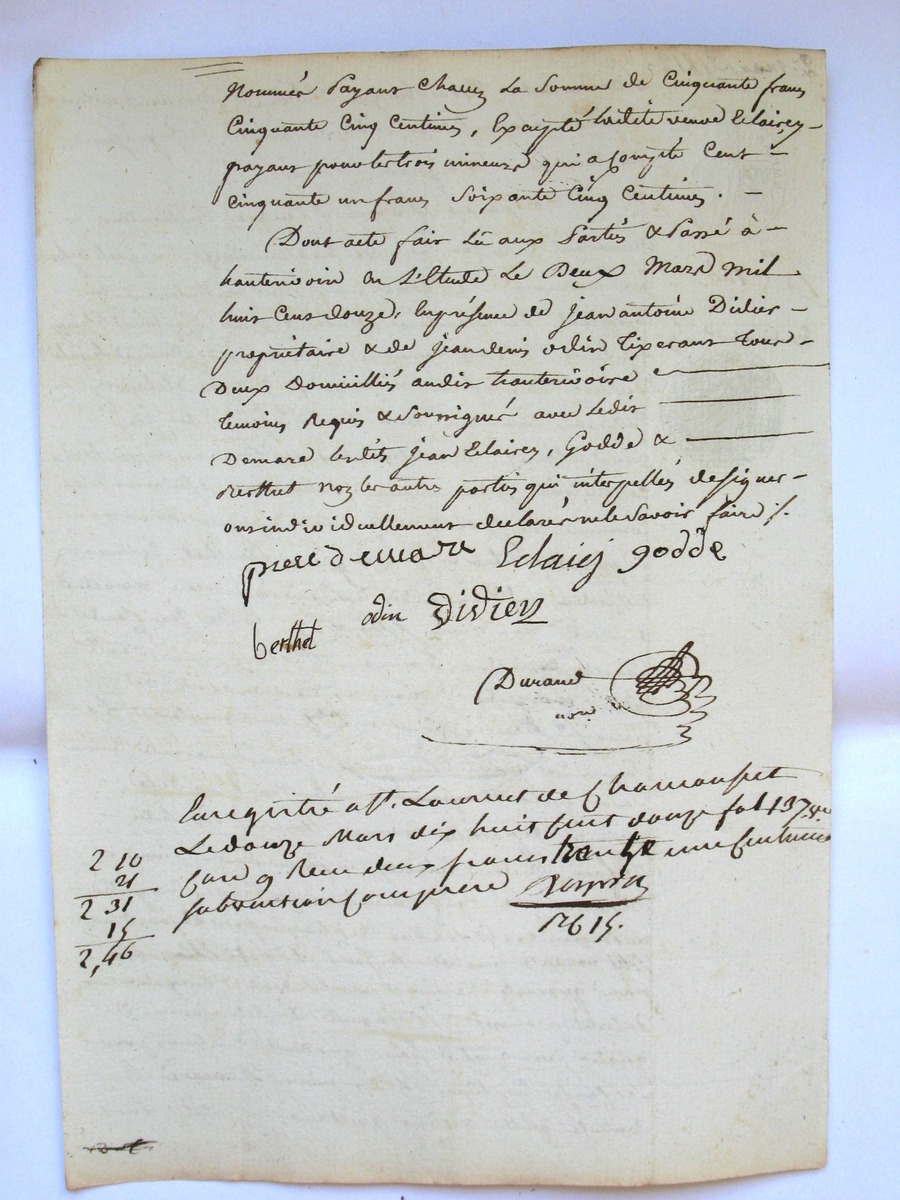 Nommés payant chacun la somme de cinquante francs
cinquante cinq centimes, Excepté ladite veuve Eclairey
payant pour les trois mineurs qui a compté cent
cinquante un francs soixante cinq centimes.
Dont acte fait lû aux parties & passé à
hauterivoire en l'Etude Le Deux Mars mil
huit cent douze, En présence de jean antoine Didier
propriétaire & de jean denis odin tixerant tous
Deux Domiciliés audit hauterivoire
temoins requis & soussignés avec Ledit
Demare lesdits jean Eclairey, Godde &
Berthet non les autres parties qui interpellés de signer
ont individuellement déclarés ne le savoir faire /.
piere demare Eclaiey godde
berthet odin Didier
Durand
nore
Enregistré à St. Laurent de Chamousset
Le douze Mars dix huit cent douze fol 137
Case 9 Recu deux francs trente une centimes
subvention Comprise
2 10
21
2 31
15
2,46